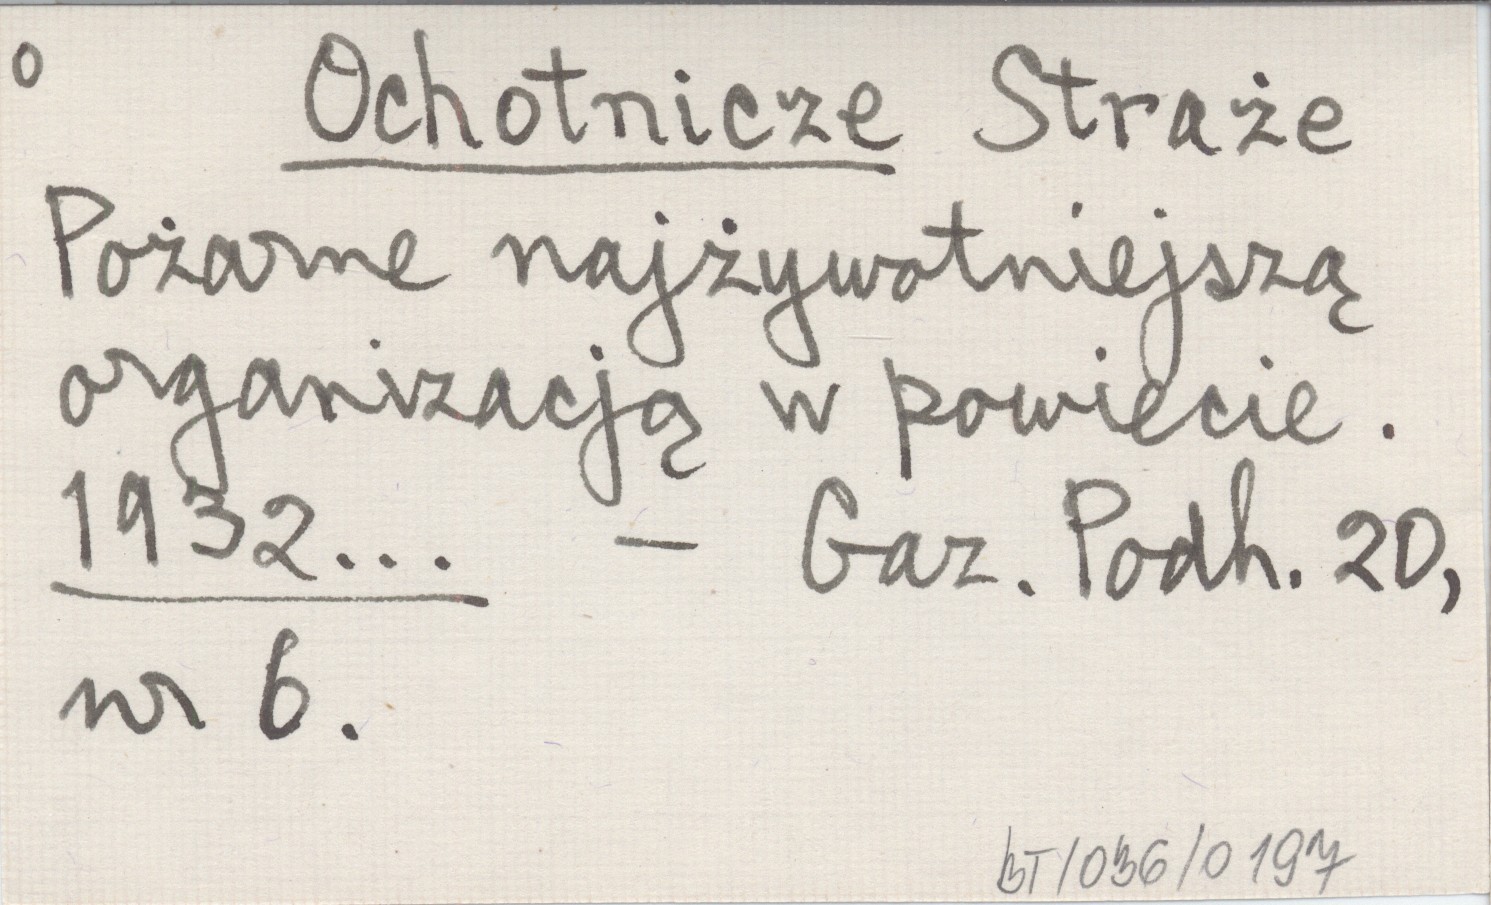 o
Ochotnicze Straże
Pożarne najżywotniejszą
organizacją w powiecie.
1932... - Gaz. Podh. 20,
nr 6.
BT/036/0197